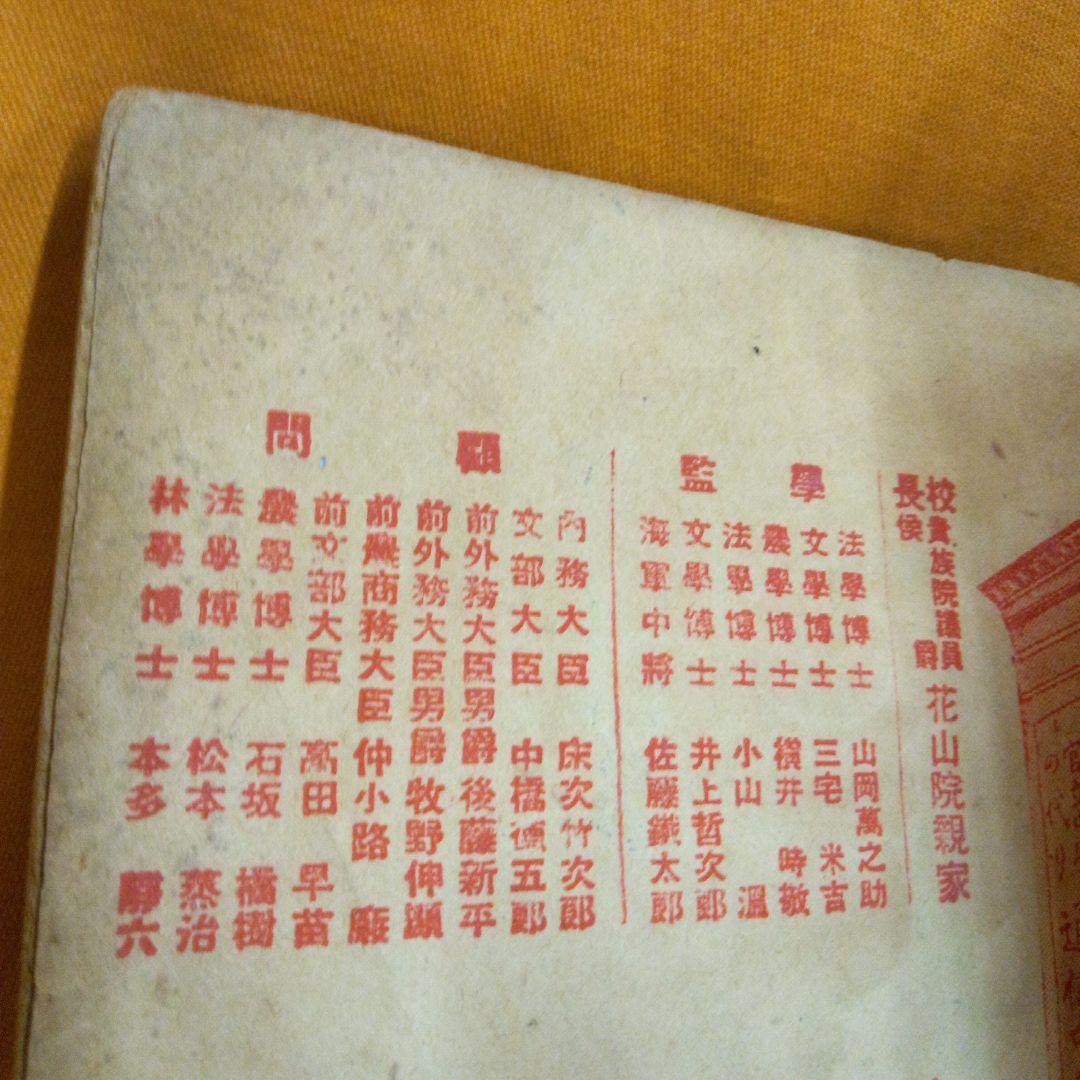 校長 貴族院議員 侯爵 花山院親家
學監
法學博士 山岡萬之助
文學博士 三宅米吉
農學博士 横井時敬
法學博士 小山溫
文學博士 井上哲次郎
海軍中將 佐藤鐵太郎
顧問
內務大臣 床次竹次郎
文部大臣 中橋德五郎
前外務大臣男爵 後藤新平
前外務大臣男爵 牧野伸顯
前農商務大臣 仲小路廉
前文部大臣 高田早苗
農學博士 石坂橘樹
法學博士 松本蒸治
林學博士 本多靜六
の代り